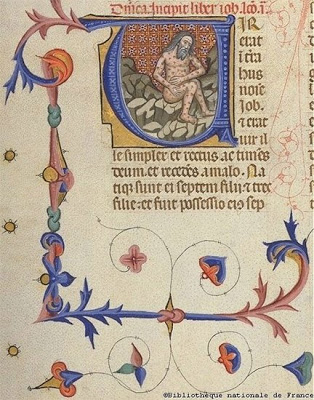 Dñica. Incipit liber iob. lcõ. i.
VIR
erat
ĩ t̃ra
hus
noĩe
Job.
⁊ erat
uir il
le simplex et rectus ac timẽs
deum. et recedẽs a malo. Na
tiq; sunt ei septem filii ⁊ tres
filie. et fuit possessio eiꝰ sep
©Bibliothèque nationale de France